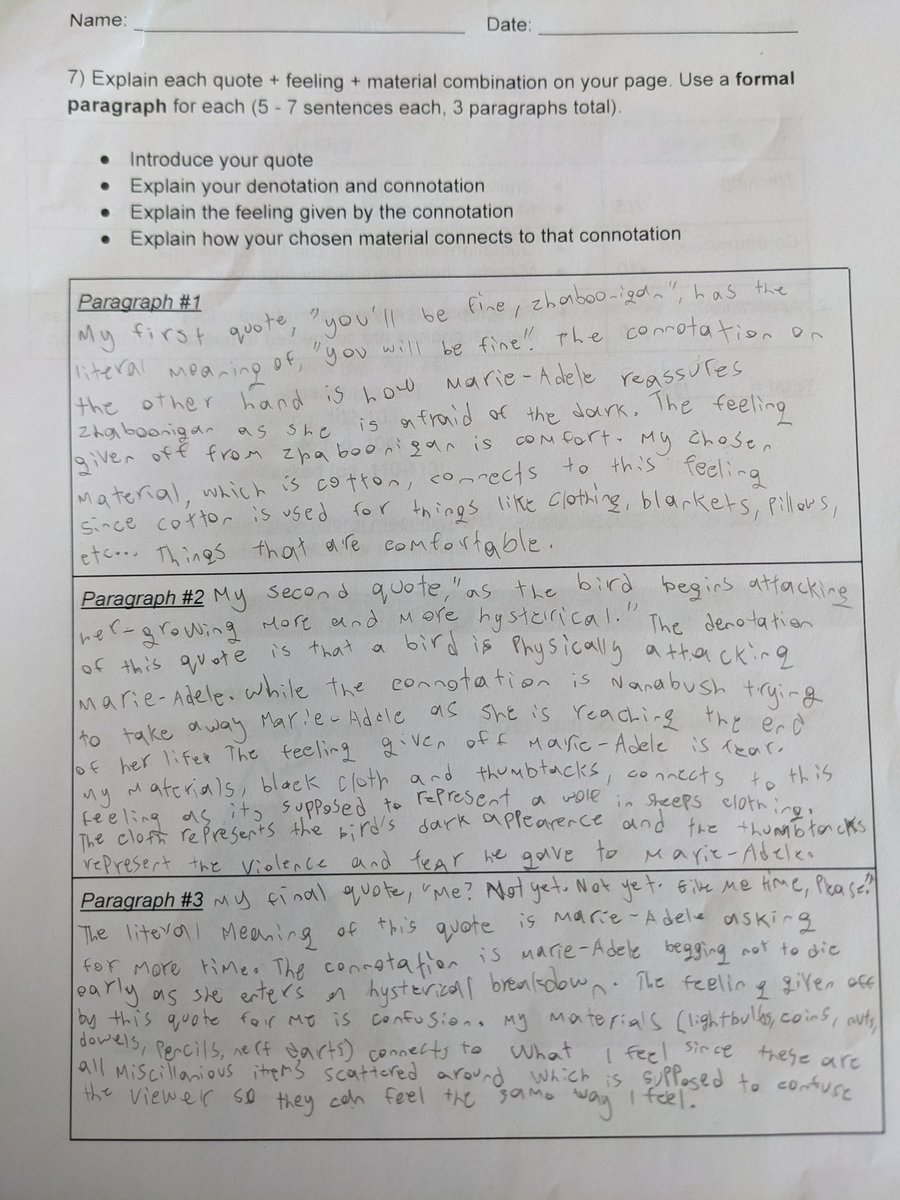 Name: Date:
7) Explain each quote + feeling + material combination on your page. Use a formal
paragraph for each (5 - 7 sentences each, 3 paragraphs total).
• Introduce your quote
• Explain your denotation and connotation
• Explain the feeling given by the connotation
• Explain how your chosen material connects to that connotation
Paragraph #1
My first quote, "you'll be fine, zhaboonigan", has the
literal meaning of, "you will be fine". The connotation on
the other hand is how Marie-Adele reassures
zhaboonigan as she is afraid of the dark. The feeling
given off from zhaboonigan is comfort. My chosen
material, which is cotton, connects to this feeling
since cotton is used for things like clothing, blankets, pillows,
etc... Things that are comfortable.
Paragraph #2 My second quote, "as the bird begins attacking
her-growing more and more hysterical." The denotation
of this quote is that a bird is physically attacking
Marie-Adele. While the connotation is Nanabush trying
to take away Marie-Adele as she is reaching the end
of her life. The feeling given off Marie-Adele is fear.
My materials, black cloth and thumbtacks, connects to this
feeling as its supposed to represent a in sheeps clothing.
The cloth represents the bird's dark appearence and the thumbtacks
represent the violence and fear he gave to Marie-Adele.
Paragraph #3 My final quote, "Me? Not yet. Not yet. Give me time, Please."
The literal meaning of this quote is Marie-Adele asking
for more time. The connotation is Marie-Adele begging not to die
early as she enters a hysterical breakdown. The feeling given off
by this quote for me is confusion. My materials (lightbulbs, coins, nuts,
dowels, pencils, nerf darts) connects to what I feel since these are
all miscillanious items scattered around which is supposed to confuse
the viewer so they can feel the same way I feel.